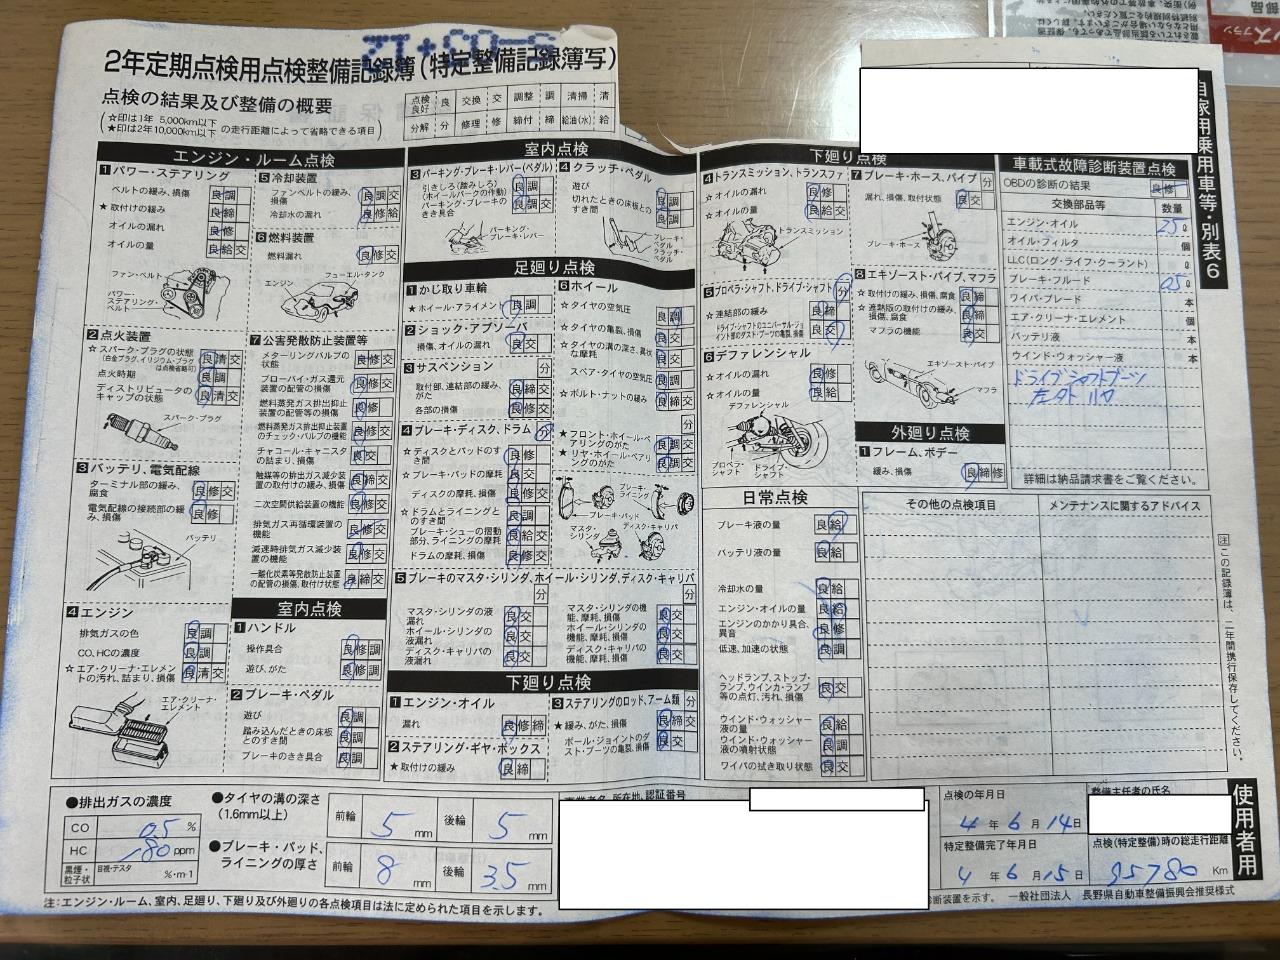 2年定期点検用点検整備記録簿(特定整備記録簿写)
点検の結果及び整備の概要
(☆印は1年 5,000km以下
★印は2年10,000km以下 の走行距離によって省略できる項目)
点検良好 良 交換 交 調整 調 清掃 清
分解 分 修理 修 締付 締 給油(水) 給
自家用乗用車等・別表6
エンジン・ルーム点検
1 パワー・ステアリング
ベルトの緩み、損傷 良 調
★ 取付けの緩み 良 締
オイルの漏れ 良 修
オイルの量 良 給 交
ファン・ベルト
パワー・ステアリング・ベルト
2 点火装置
☆ スパーク・プラグの状態 良 清 交
(白金プラグ、イリジウム・プラグは点検省略可)
点火時期 良 調
ディストリビュータのキャップの状態 良 清 交
スパーク・プラグ
3 バッテリ、電気配線
ターミナル部の緩み、腐食 良 修 交
電気配線の接続部の緩み、損傷 良 修
バッテリ
4 エンジン
排気ガスの色 良 調
CO、HCの濃度 良 調
☆ エア・クリーナ・エレメントの汚れ、詰まり、損傷 良 清 交
エア・クリーナ・エレメント
5 冷却装置
ファンベルトの緩み、損傷 良 調 交
冷却水の漏れ 良 修 給
6 燃料装置
燃料漏れ 良 修 交
フューエル・タンク
エンジン
7 公害発散防止装置等
メターリングバルブの状態 良 修 交
ブローバイ・ガス還元装置の配管の損傷 良 修 交
燃料蒸発ガス排出抑止装置の配管等の損傷 良 修
燃料蒸発ガス排出抑止装置のチェック・バルブの機能 良 修 交
チャコール・キャニスタの詰まり、損傷 良 交
触媒等の排出ガス減少装置の取付けの緩み、損傷 良 修 締
二次空気供給装置の機能 良 修 交
排気ガス再循環装置の機能 良 修 交
減速時排気ガス減少装置の機能 良 修 交
一酸化炭素等発散防止装置の配管の損傷、取付状態 良 締 交
室内点検
1 ハンドル
操作具合 良 修 調
遊び、がた 良 修 調
2 ブレーキ・ペダル
遊び 良 調
踏み込んだときの床板とのすき間 良 調
ブレーキのきき具合 良 調
室内点検
3 パーキング・ブレーキ・レバー(ペダル)
引きしろ(踏みしろ) 良 調
(ホイールパークの作動)
パーキング・ブレーキのきき具合 良 調 交
パーキング・ブレーキ・レバー
4 クラッチ・ペダル
遊び 良 調
切れたときの床板とのすき間 良 調
ブレーキ・ペダル
クラッチ・ペダル
足廻り点検
1 かじ取り車輪
★ ホイール・アライメント 良 調
2 ショック・アブソーバ
損傷、オイルの漏れ 良 交
3 サスペンション 分
取付部、連結部の緩み、がた 良 締 交
各部の損傷 良 修 交
4 ブレーキ・ディスク、ドラム 分
☆ ディスクとパッドのすき間 良 修
☆ ブレーキ・パッドの摩耗 良 交
ディスクの摩耗、損傷 良 修 交
☆ ドラムとライニングとのすき間 良 調
☆ ブレーキ・シューの摺動部分、ライニングの摩耗 良 給 交
ドラムの摩耗、損傷 良 修 交
5 ブレーキのマスタ・シリンダ、ホイール・シリンダ、ディスク・キャリパ
分 分
マスタ・シリンダの液漏れ 良 交
ホイール・シリンダの液漏れ 良 交
ディスク・キャリパの液漏れ 良 交
マスタ・シリンダの機能、摩耗、損傷 良 交
ホイール・シリンダの機能、摩耗、損傷 良 交
ディスク・キャリパの機能、摩耗、損傷 良 交
6 ホイール
☆ タイヤの空気圧 良 調
☆ タイヤの亀裂、損傷 良 交
☆ タイヤの溝の深さ、異状な摩耗 良 交
スペア・タイヤの空気圧 良 調
☆ ボルト・ナットの緩み 良 締 交
分
★ フロント・ホイール・ベアリングのがた 良 調 交
★ リヤ・ホイール・ベアリングのがた 良 調 交
ブレーキ・ライニング
ブレーキ・パッド
マスタ・シリンダ
ディスク・キャリパ
下廻り点検
1 エンジン・オイル
漏れ 良 修 締
2 ステアリング・ギヤ・ボックス
★ 取付けの緩み 良 締
3 ステアリングのロッド、アーム類 分
★ 緩み、がた、損傷 良 締 交
ボール・ジョイントのダスト・ブーツの亀裂、損傷 良 交
下廻り点検
4 トランスミッション、トランスファ
☆ オイルの漏れ 良 修
☆ オイルの量 良 給 交
トランスミッション
5 プロペラ・シャフト、ドライブ・シャフト 分
☆ 連結部の緩み 良 締
ドライブ・シャフトのユニバーサル・ジョイント部のダスト・ブーツの亀裂、損傷 良 交
6 デファレンシャル
☆ オイルの漏れ 良 修
☆ オイルの量 良 給
デファレンシャル
プロペラ・シャフト
ドライブ・シャフト
7 ブレーキ・ホース、パイプ 分
漏れ、損傷、取付状態 良 交
ブレーキ・ホース
8 エキゾースト・パイプ、マフラ
☆ 取付けの緩み、損傷、腐食 良 締
☆ 遮熱版の取付けの緩み、損傷、腐食 良 締
マフラの機能 良 交
エキゾースト・パイプ
マフラ
外廻り点検
1 フレーム、ボデー
緩み、損傷 良 締 修
日常点検
ブレーキ液の量 良 給
バッテリ液の量 良 給
冷却水の量 良 給
エンジン・オイルの量 良 給
エンジンのかかり具合、異音 良 修
低速、加速の状態 良 調
ヘッドランプ、ストップ・ランプ、ウインカ・ランプ等の点灯、汚れ、損傷 良 交
ウインド・ウォッシャー液の量 良 給
ウインド・ウォッシャー液の噴射状態 良 調
ワイパの拭き取り状態 良 交
車載式故障診断装置点検
OBDの診断の結果 良 修
交換部品等 数量
エンジン・オイル 25 ℓ
オイル・フィルタ 個
LLC(ロング・ライフ・クーラント) ℓ
ブレーキ・フルード 05 ℓ
ワイパ・ブレード 本
エア・クリーナ・エレメント 個
バッテリ液 本
ウインド・ウォッシャー液 本
ドライブシャフトブーツ
左外 リヤ
詳細は納品請求書をご覧ください。
その他の点検項目 メンテナンスに関するアドバイス
注 この記録簿は、二年間携行保存してください。
●排出ガスの濃度
CO 0.5 %
HC 180 ppm
黒煙・粒子状 目視・テスタ %・m-1
●タイヤの溝の深さ(1.6mm以上)
前輪 5 mm 後輪 5 mm
●ブレーキ・パッド、ライニングの厚さ
前輪 8 mm 後輪 3.5 mm
所在地、認証番号
点検の年月日
4 年 6 月 14 日
特定整備完了年月日
4 年 6 月 15 日
整備主任者の氏名
点検(特定整備)時の総走行距離
95780 Km
使用者用
注:エンジン・ルーム、室内、足廻り、下廻り及び外廻りの各点検項目は法に定められた項目を示します。
断装置を示す。 一般社団法人 長野県自動車整備振興会推奨様式